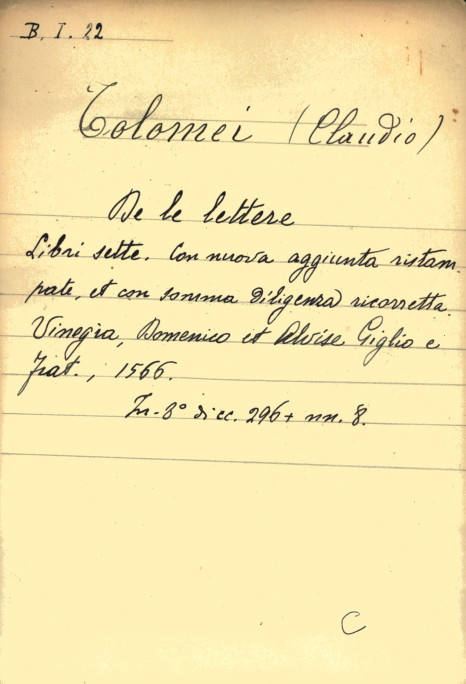 B. I. 22
Tolomei (Claudio)
De le lettere
Libri sette. Con nuova aggiunta ristam-
pate, et con somma diligenza ricorretta.
Vinegia, Domenico et Alvise Giglio e
frat., 1566.
In-8° di cc. 296 + nn. 8.
C